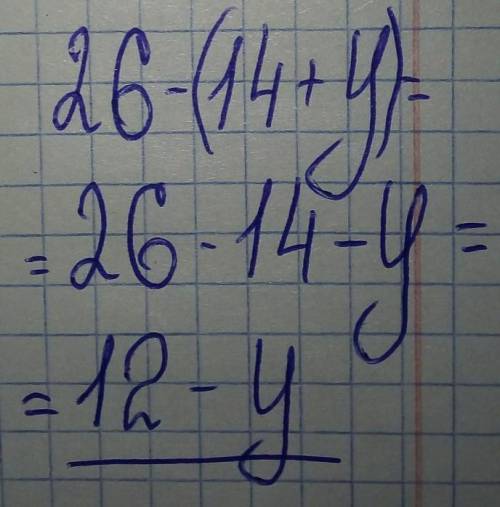 26-(14+y)=
=26-14-y=
=12-y